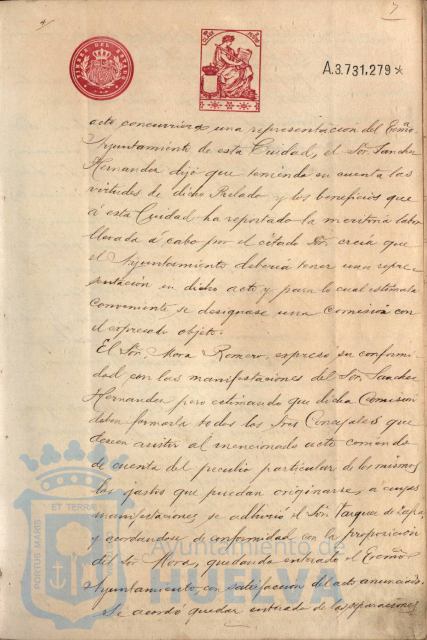 7
TIMBRE DEL ESTADO
A.3.731.279*
acto concurriera una representación del Excmo
Ayuntamiento de esta Ciudad, el Sor. Sanchez
Hernandez dijó que teniendo en cuenta las
virtudes de dicho Prelado y los beneficios que
á esta Ciudad ha reportado la meritoria labor
llevada á cabo por el citado Sor. creia que
el Ayuntamiento deberia tener una repre-
sentación en dicho acto y para lo cual estimaba
conveniente se designase una Comisión con
el expresado objeto.
El Sor. Mora Romero, expresó su conformi-
dad con las manifestaciones del Sor. Sanchez
Hernandez pero estimando que dicha Comisión
deben formarla todos los Sres Concejales que
deseen asistir al mencionado acto
de cuenta del peculio particular de los mismos
los gastos que puedan originarse, á cuyas
manifestaciones se adhirió el Sor. Vazquez de Zafra
y acordandose de conformidad con la proposición
del Sor Mora, quedando enterado el Excmo
Ayuntamiento con satisfacción del acto anunciado.
Se acordó quedar enterado de las reparaciones
PORTUS MARIS ET TERRAE
Ayuntamiento de
HUELVA